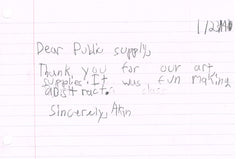 Dear Public supply,
Thank you for our art
supplies. It was fun making
abstract
Sincerely, Akin